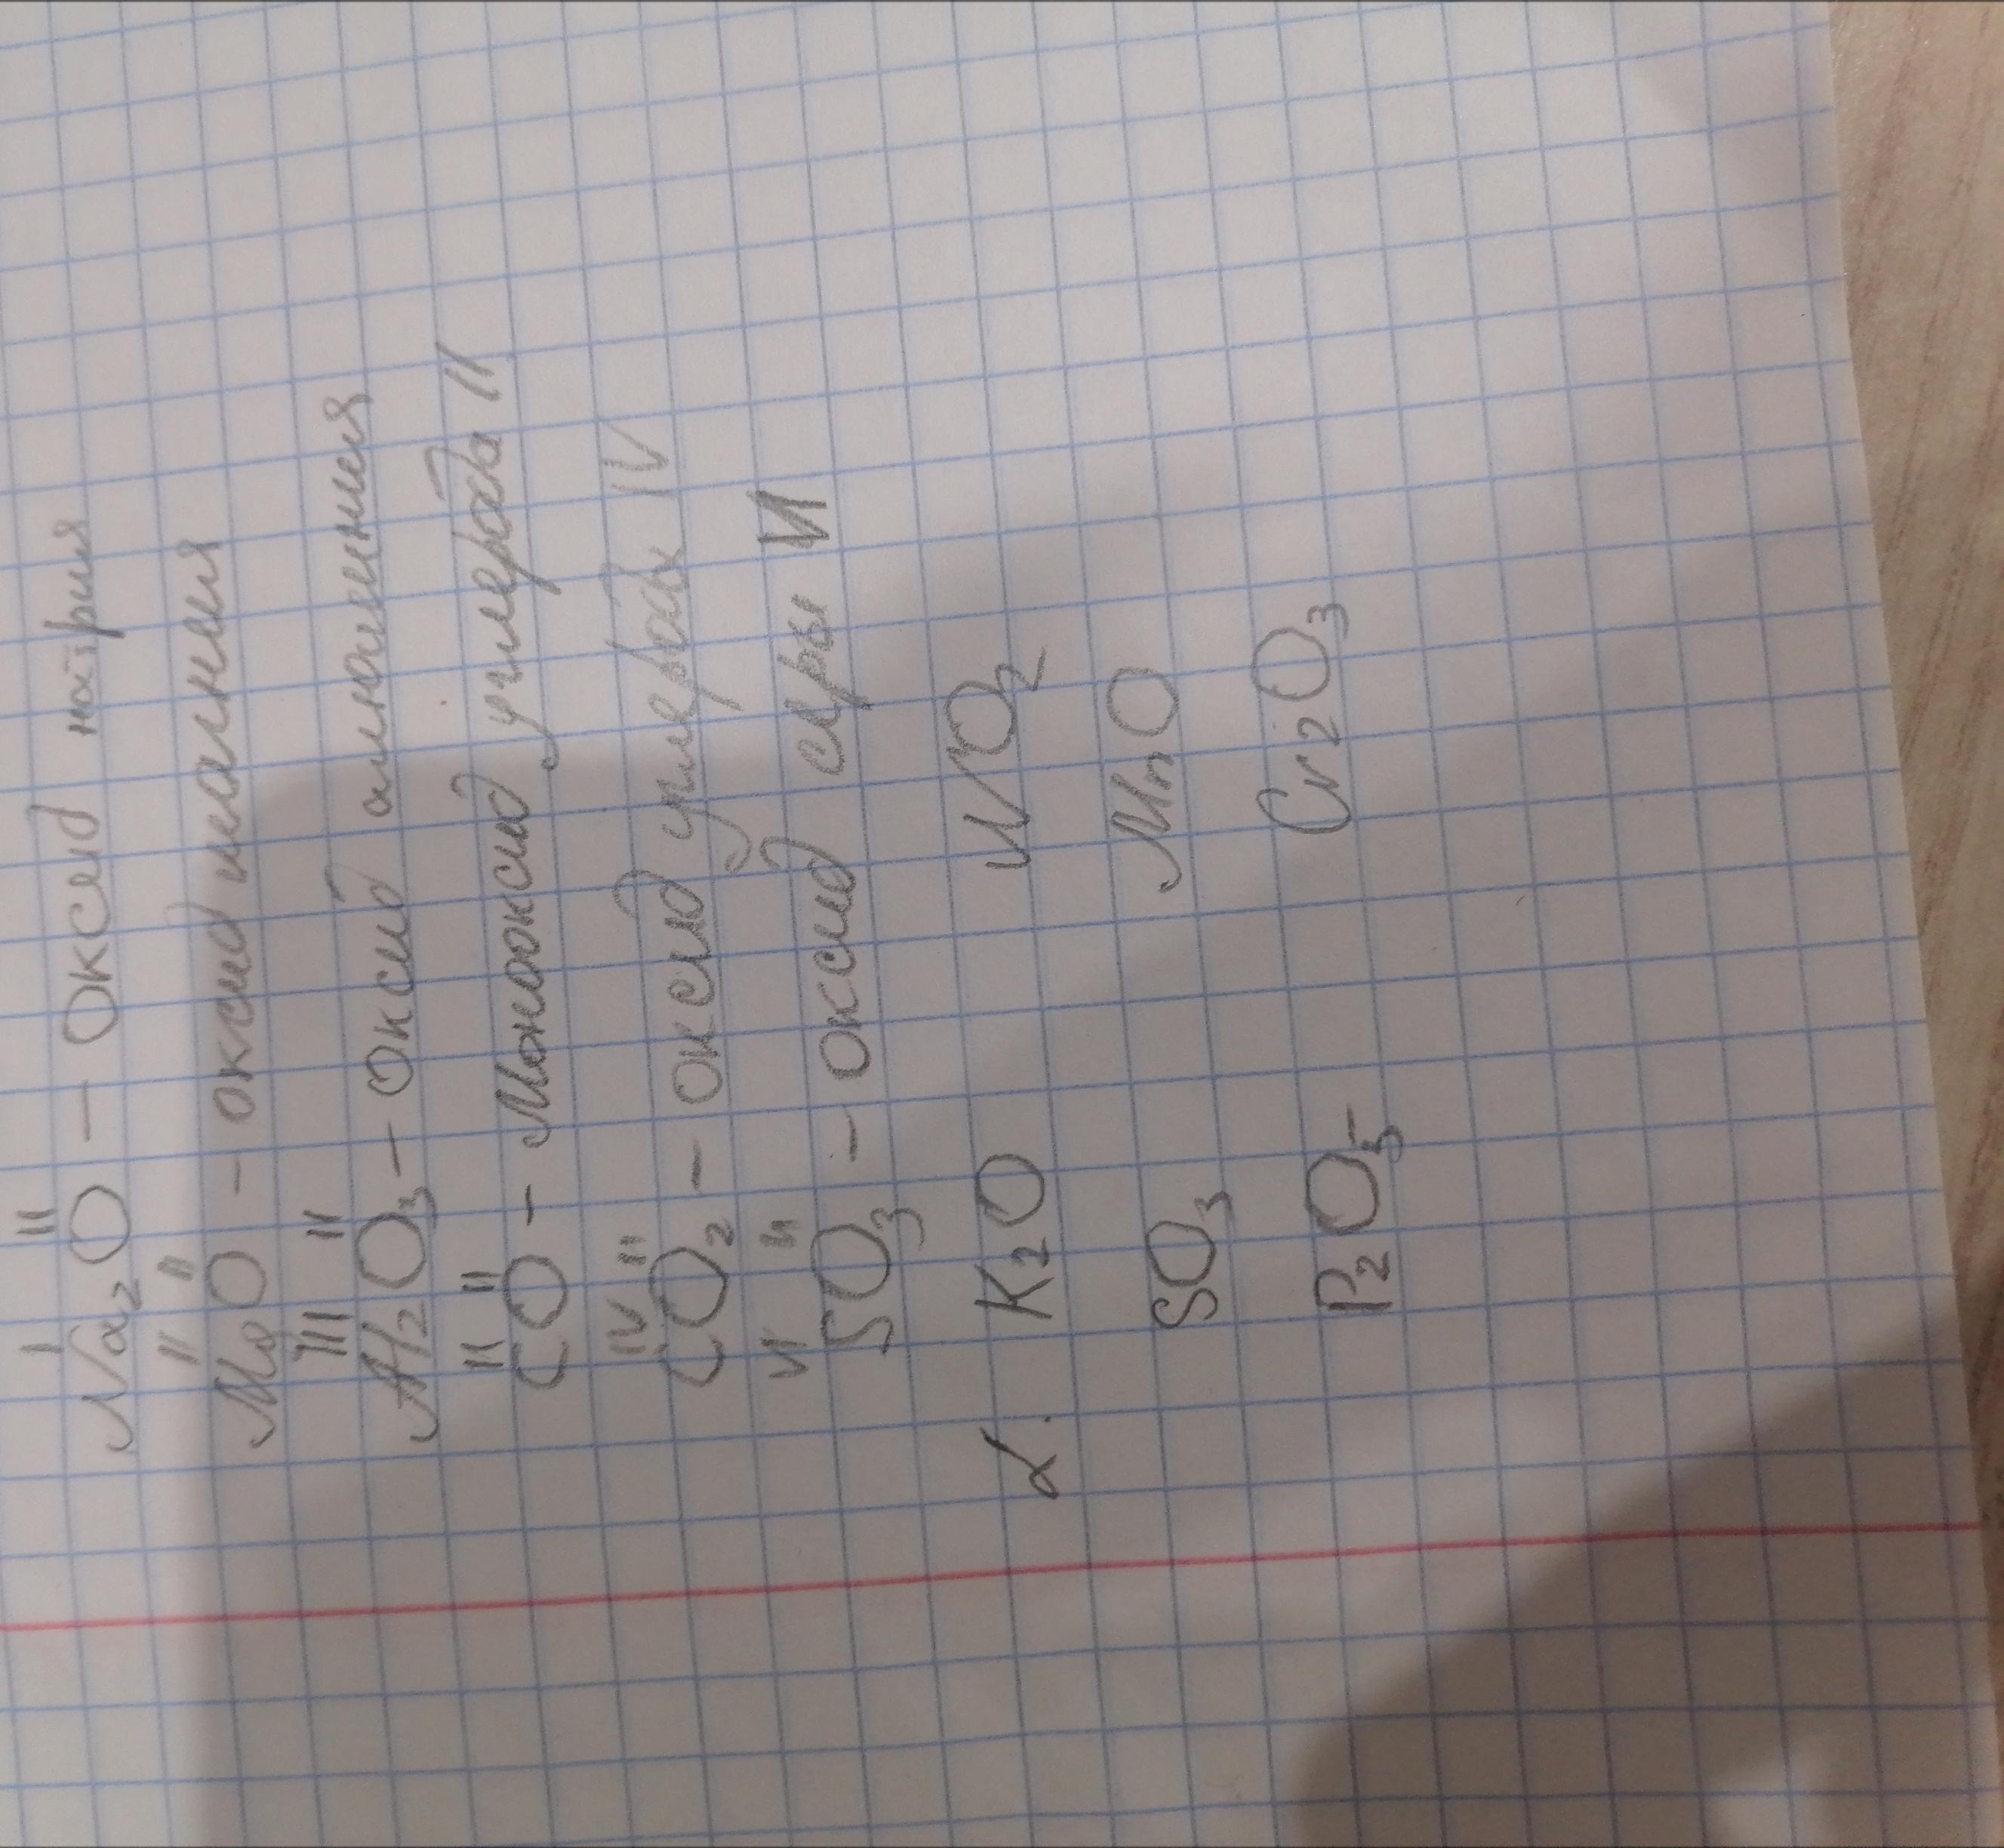 I II
Na₂O – Оксид натрия
II II
MgO – оксид магния
III II
Al₂O₃ – Оксид алюминия
II II
CO – Монооксид углерода II
IV II
CO₂ – оксид углерода IV
VI II
SO₃ – Оксид серы VI
2. K₂O NO₂
SO₃ MnO
P₂O₅ Cr₂O₃